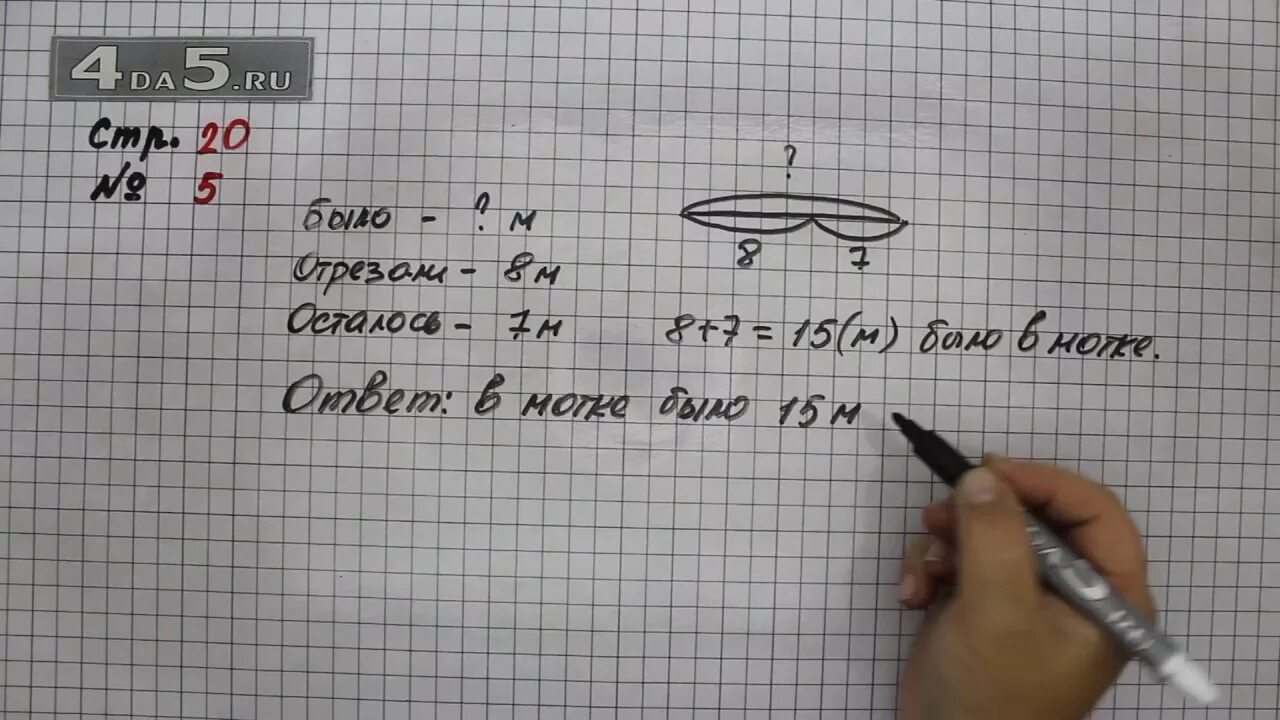 4DA5.RU
Стр. 20
№ 5
?
Было - ? м
8 7
Отрезали - 8м
Осталось - 7м
8+7 = 15(м) было в мотке.
Ответ: в мотке было 15 м